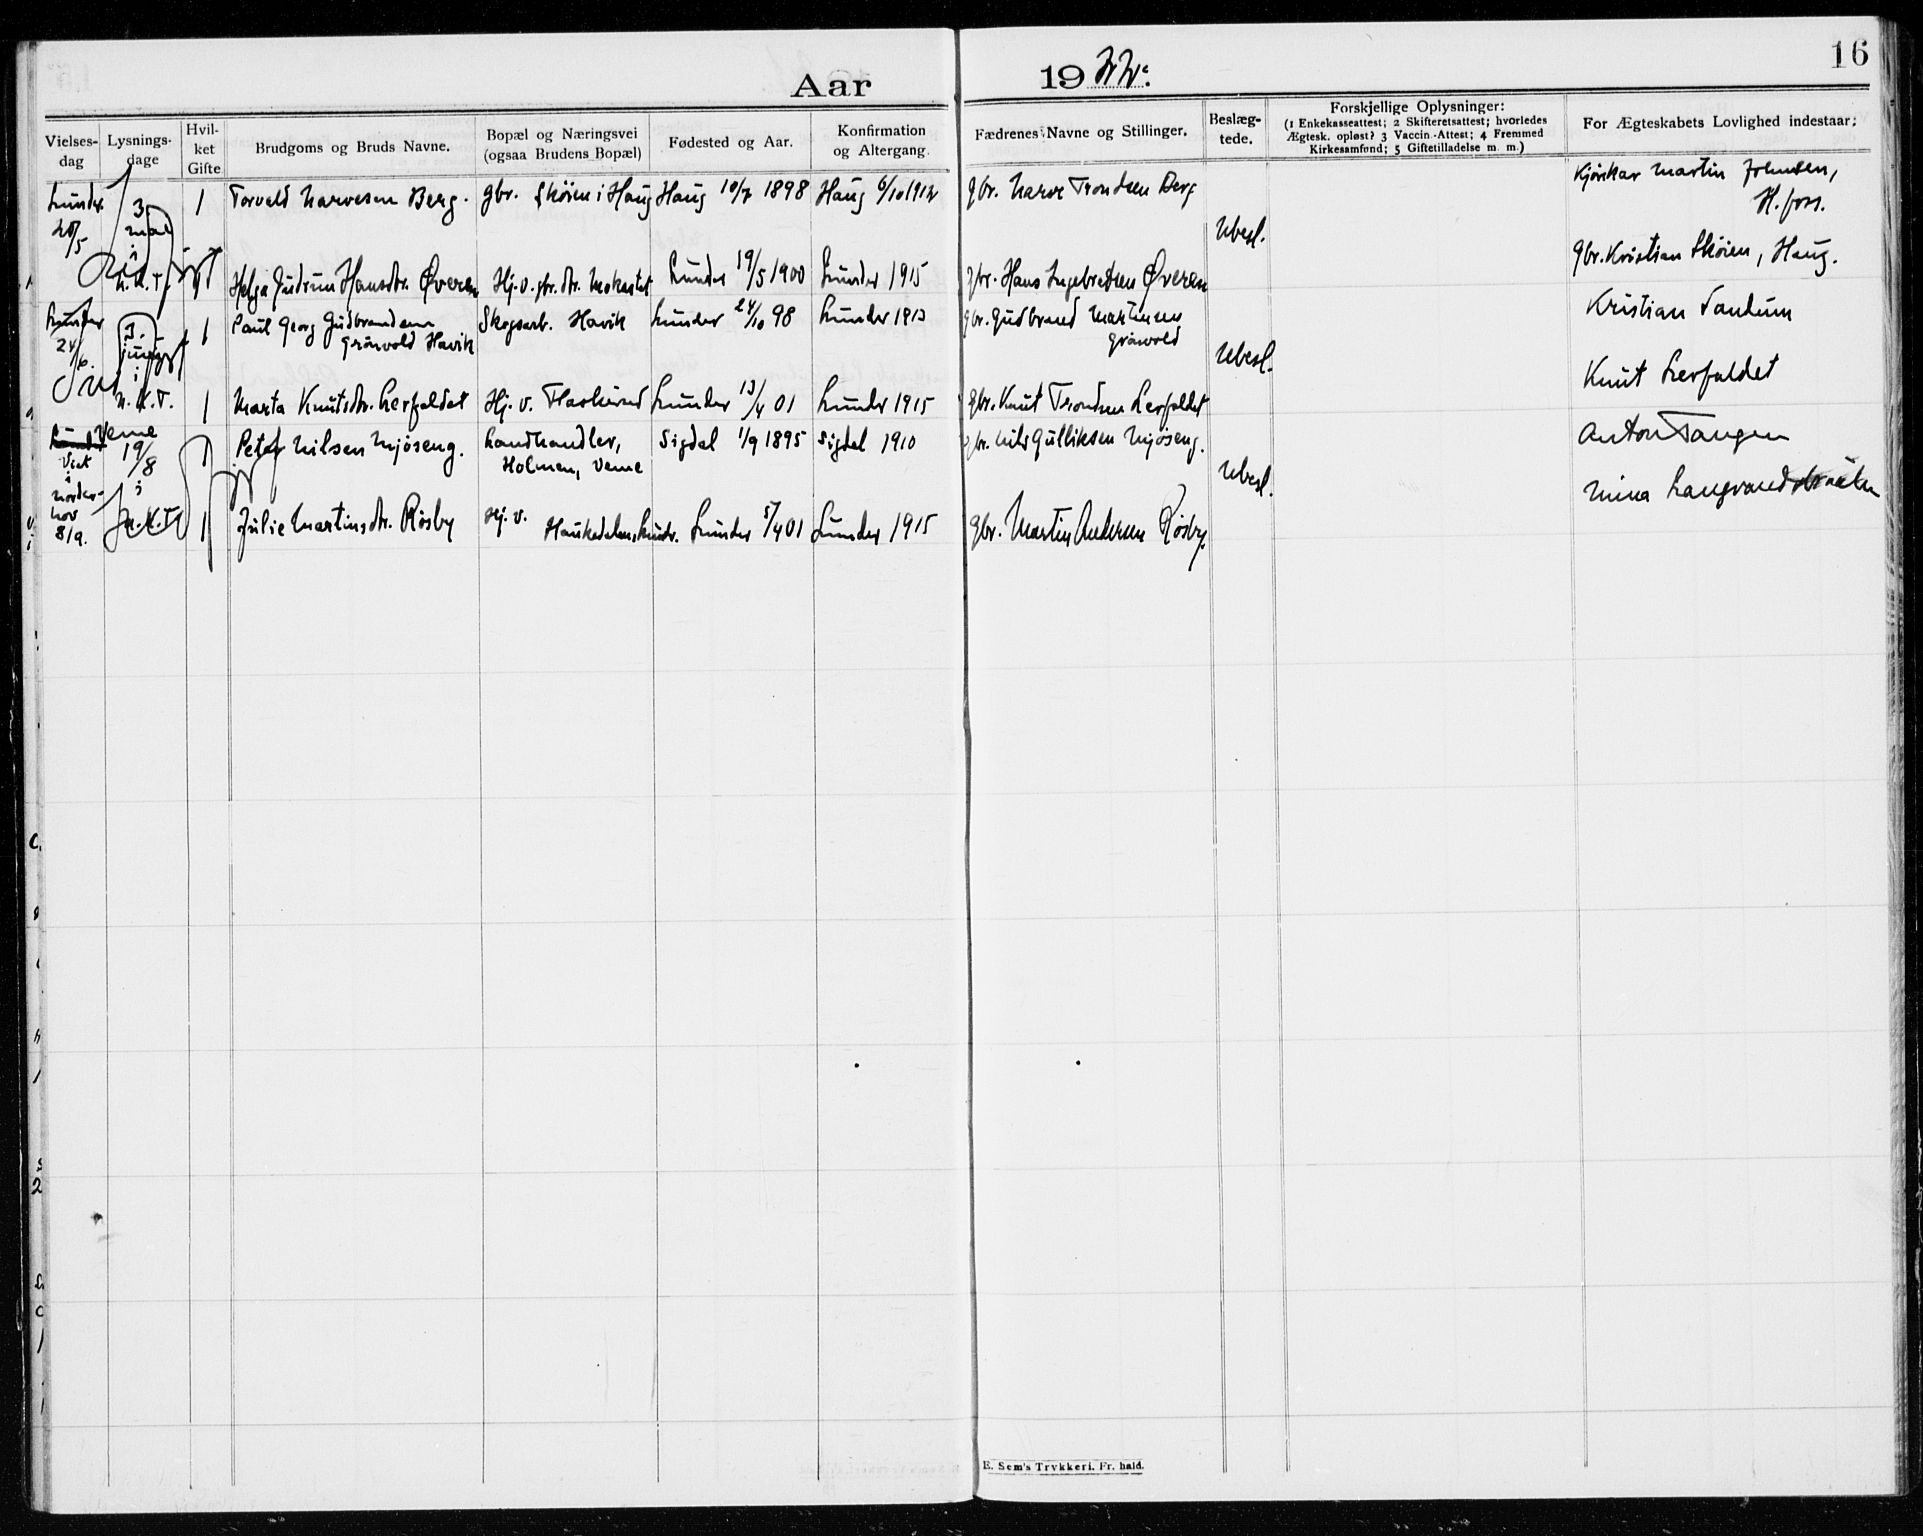 16
Aar 1922.
Vielses-dag
Lysnings-dage
Hvil-ket Gifte
Brudgoms og Bruds Navne.
Bopæl og Næringsvei (ogsaa Brudens Bopæl)
Fødested og Aar.
Konfirmation og Altergang.
Fædrenes Navne og Stillinger.
Beslæg-tede.
Forskjellige Oplysninger:
(1 Enkekasseattest; 2 Skifteretsattest; hvorledes
Ægtesk. opløst? 3 Vaccin.-Attest; 4 Fremmed
Kirkesamfund; 5 Giftetilladelse m. m.)
For Ægteskabets Lovlighed indestaar:
Lunder 3 mal i N.K.T.
1 Torvald Narvesen Berg. gbr. Skôien i Haug Haug 10/7 1898 Haug 6/10 1912 gbr. Narve Trondsen Berg
Kjörskar Martin Johnsen,
H.foss.
Ubesl.
1 Helga Gudrun Hansdtr. Øveren Hj. v. gbr. dtr. Lunder 19/5 1900 Lunder 1915 gbr. Hans Ingebretsen Øveren
gbr. Kristian Skôien, Haug.
Lunder juni i N.K.T.
1 Paul Georg Gudbrandsen Grönvold Havik Skogsarb. Havik Lunder 24/10 98 Lunder 1913 gbr. Gudbrand Martinsen Grönvold
Kristian Sandum
Ubesl.
1 Marta Knutsdtr. Lerfaldet Hj. v. Flaskerud Lunder 13/4 01 Lunder 1915 gbr. Knut Trondsen Lerfaldet
Knut Lerfaldet
Viet i Norderhov 8/9. Veme 19/8 i N.K.T.
1 Peter Nilsen Mjöseng. Landhandler, Holmen, Veme Sigdal 1/9 1895 Sigdal 1910 gbr. Nils Gulliksen Mjöseng.
Anton Tangen
Ubesl.
1 Julie Martinsdtr. Rösby Hj. v. Lunder 5/4 01 Lunder 1915 gbr. Martin Andersen Rösby.
Mina Langrand
E. Sem's Trykkeri. Fr. hald.